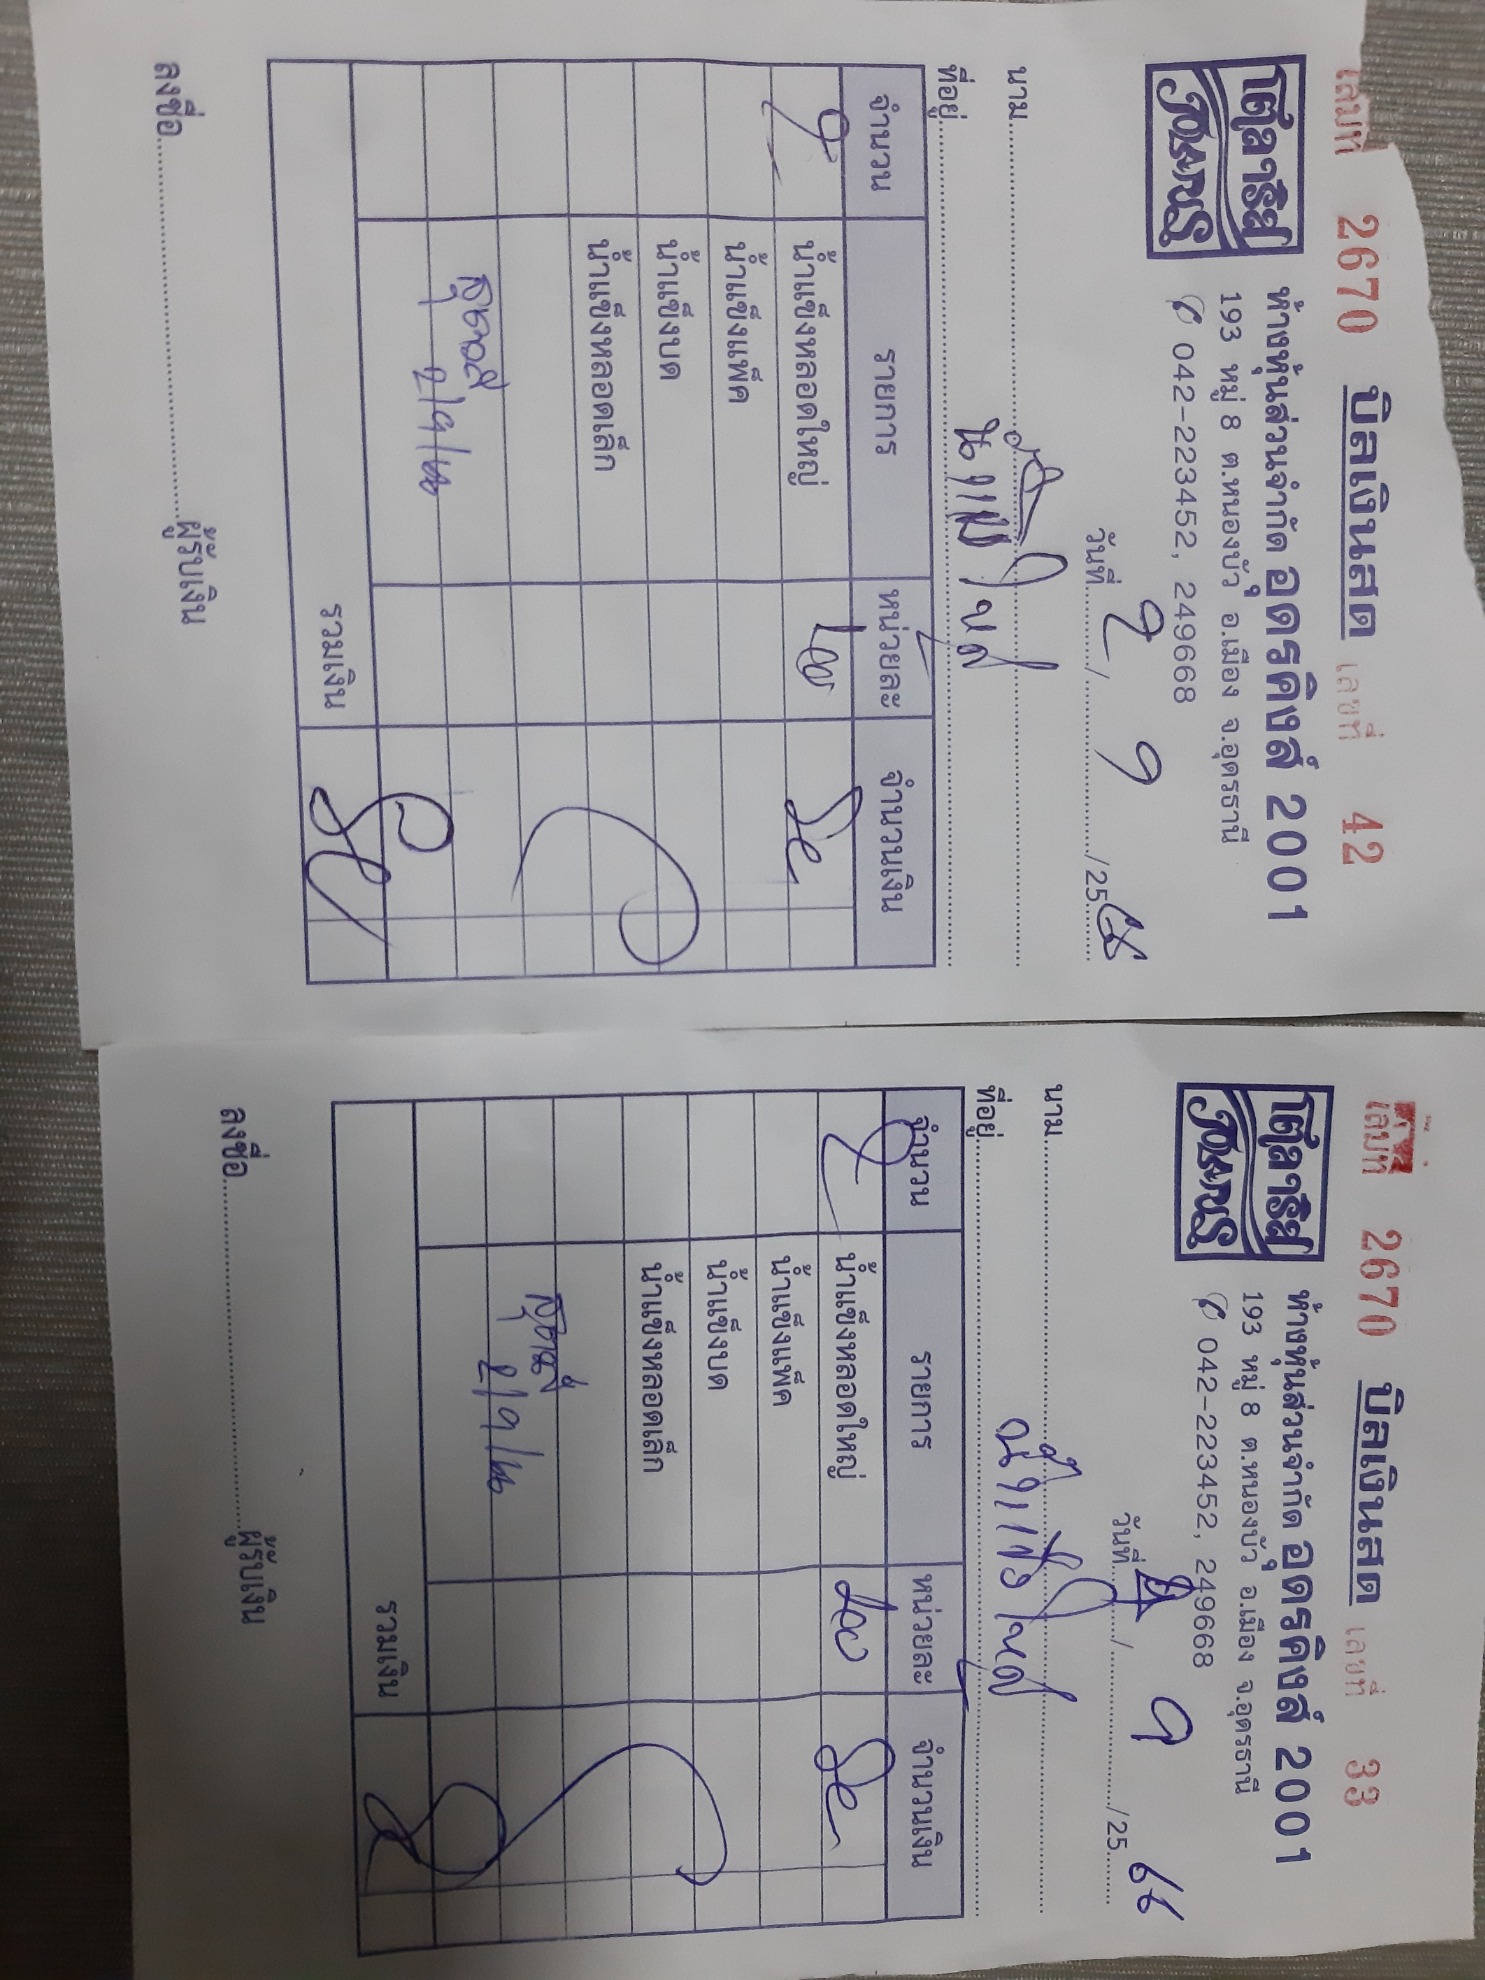 เล่มที่ 2670 บิลเงินสด เลขที่ 42
โตลาริส
POLARIS
ห้างหุ้นส่วนจำกัด อุดรคิงส์ 2001
193 หมู่ 8 ต.หนองบัว อ.เมือง จ.อุดรธานี
042-223452, 249668
วันที่ 2 / 9 /25
นาม
ที่อยู่
จำนวน รายการ หน่วยละ จำนวนเงิน
2 น้ำแข็งหลอดใหญ่ 40 80
น้ำแข็งแพ็ค
น้ำแข็งบด
น้ำแข็งหลอดเล็ก
2/9/66
รวมเงิน 80
ลงชื่อ ผู้รับเงิน
เล่มที่ 2670 บิลเงินสด เลขที่ 33
โตลาริส
POLARIS
ห้างหุ้นส่วนจำกัด อุดรคิงส์ 2001
193 หมู่ 8 ต.หนองบัว อ.เมือง จ.อุดรธานี
042-223452, 249668
วันที่ / 9 /25 66
นาม
ที่อยู่
จำนวน รายการ หน่วยละ จำนวนเงิน
2 น้ำแข็งหลอดใหญ่ 40 80
น้ำแข็งแพ็ค
น้ำแข็งบด
น้ำแข็งหลอดเล็ก
2/9/66
รวมเงิน
ลงชื่อ ผู้รับเงิน